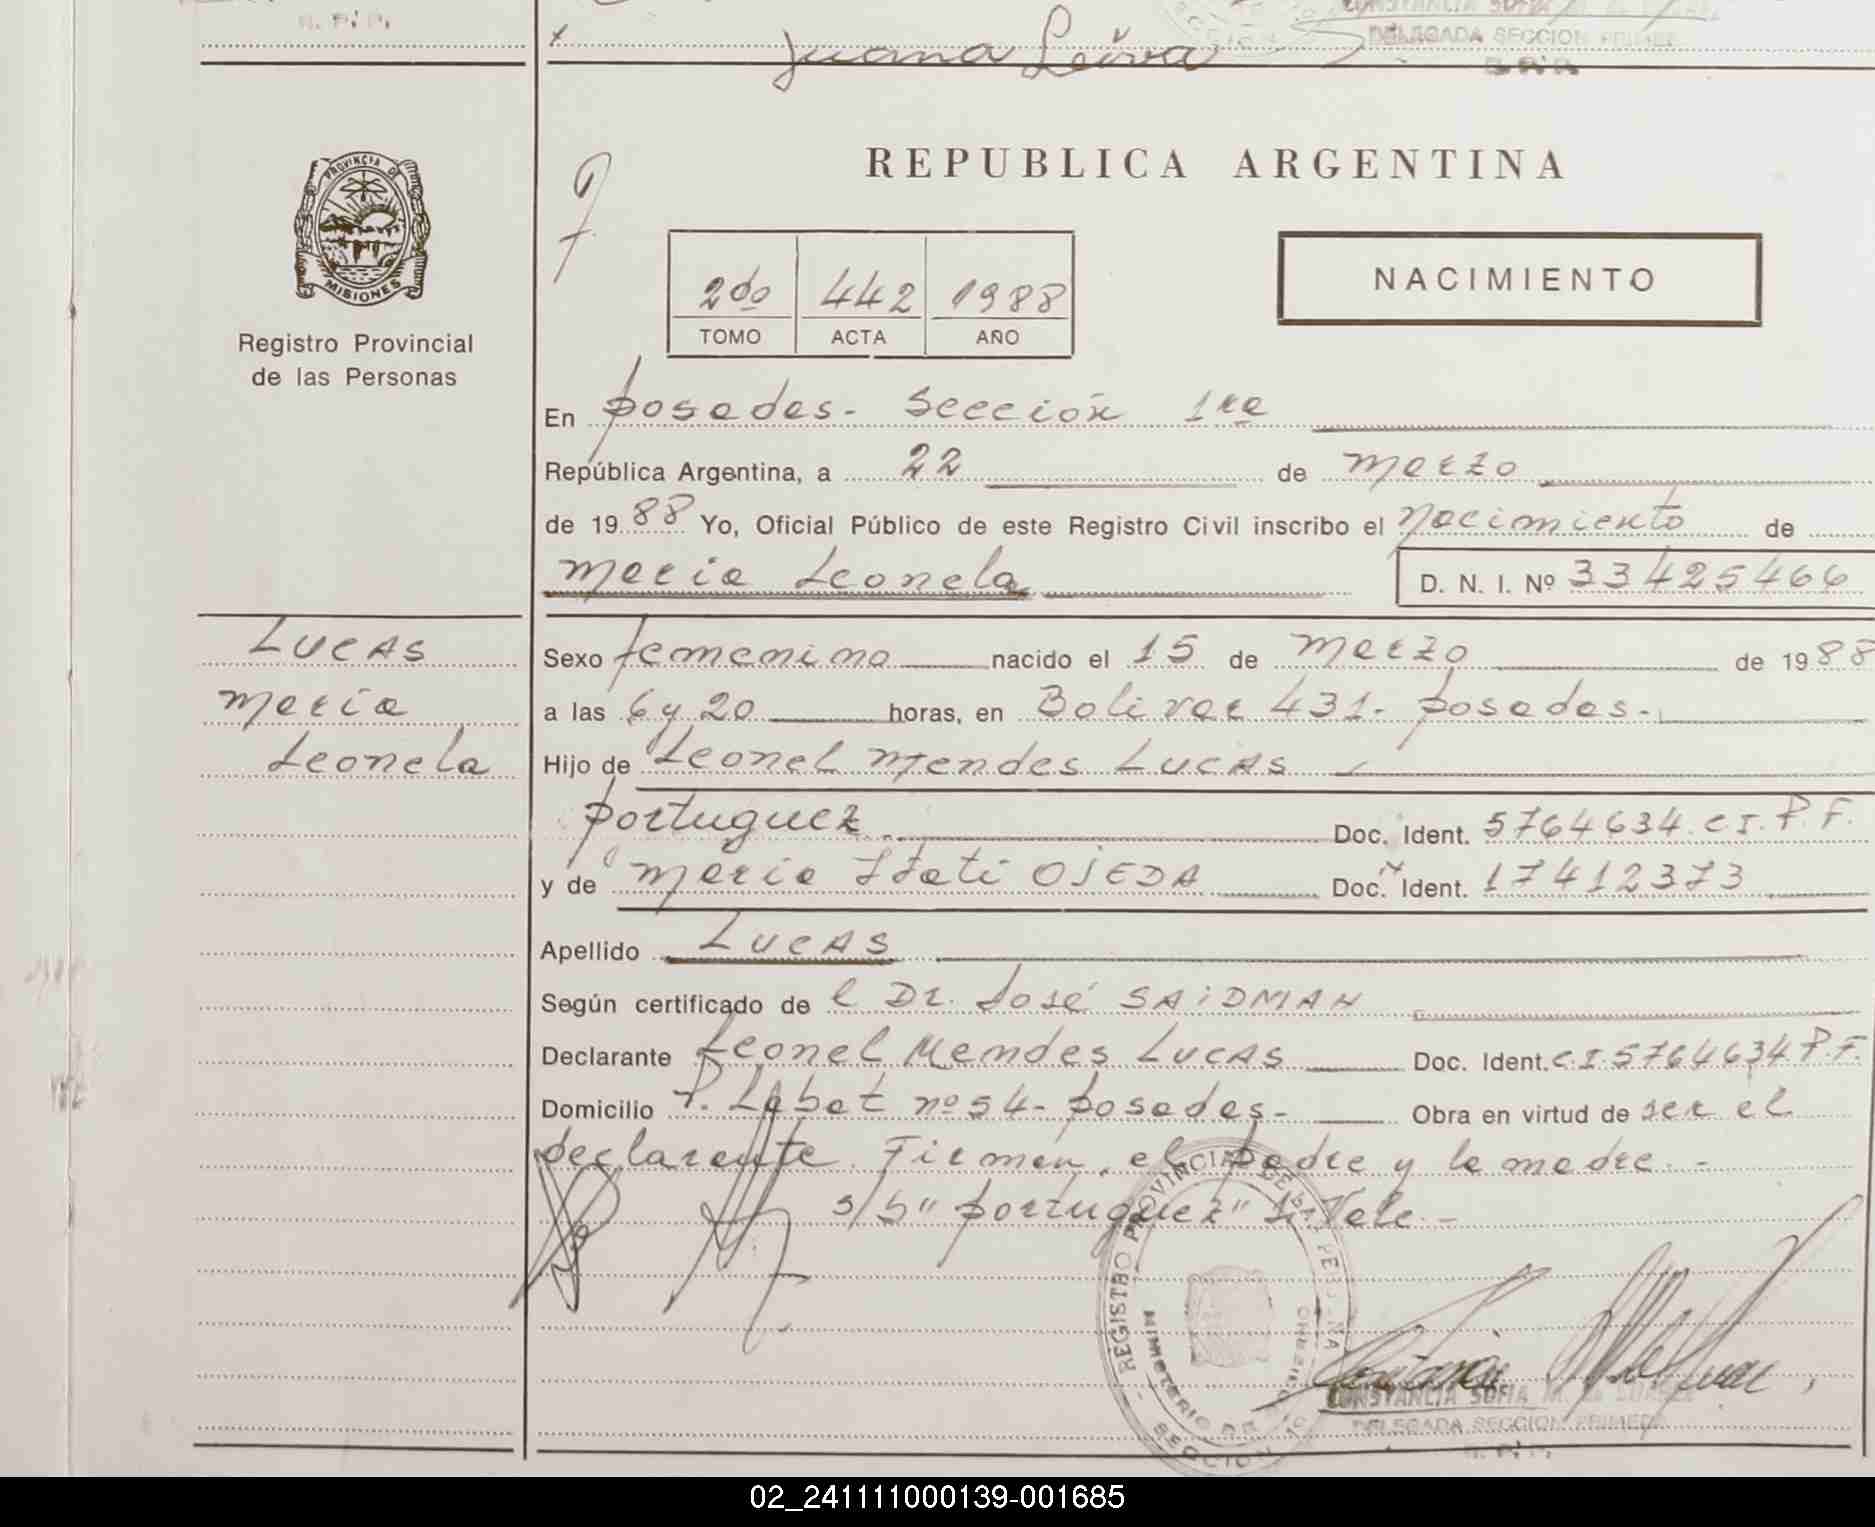 Juana Leiva
DELEGADA SECCION PRIMERA
PROVINCIA DE
MISIONES
Registro Provincial
de las Personas
REPUBLICA ARGENTINA
2do 442 1988
TOMO ACTA AÑO
NACIMIENTO
En posadas - Sección 1ra
República Argentina, a 22 de marzo
de 1988 Yo, Oficial Público de este Registro Civil inscribo el nacimiento de
maria Leonela D. N. I. Nº 33425466
LUCAS
maría
Leonela
Sexo femenino nacido el 15 de marzo de 1988
a las 6 y 20 horas, en Bolivar 431 - posadas -
Hijo de Leonel Mendes LUCAS
portuguez Doc. Ident. 5764634. C I. P. F.
y de maria Itati OJEDA Doc. Ident. 17412373
Apellido LUCAS
Según certificado de l Dr. José SAIDMAN
Declarante Leonel Mendes LUCAS Doc. Ident. C. I 5764634 P. F.
Domicilio P. Labat nº 54 - posadas - Obra en virtud de ser el
declarante. Firman, el padre y la madre. -
s/b "portuguez" Vale. -
REGISTRO PROVINCIAL DE LAS PERSONAS
MINISTERIO DE GOBIERNO
SECCION 1º
CONSTANCIA SOFIA M. de
DELEGADA SECCION PRIMERA
R. P. P.
02_241111000139-001685